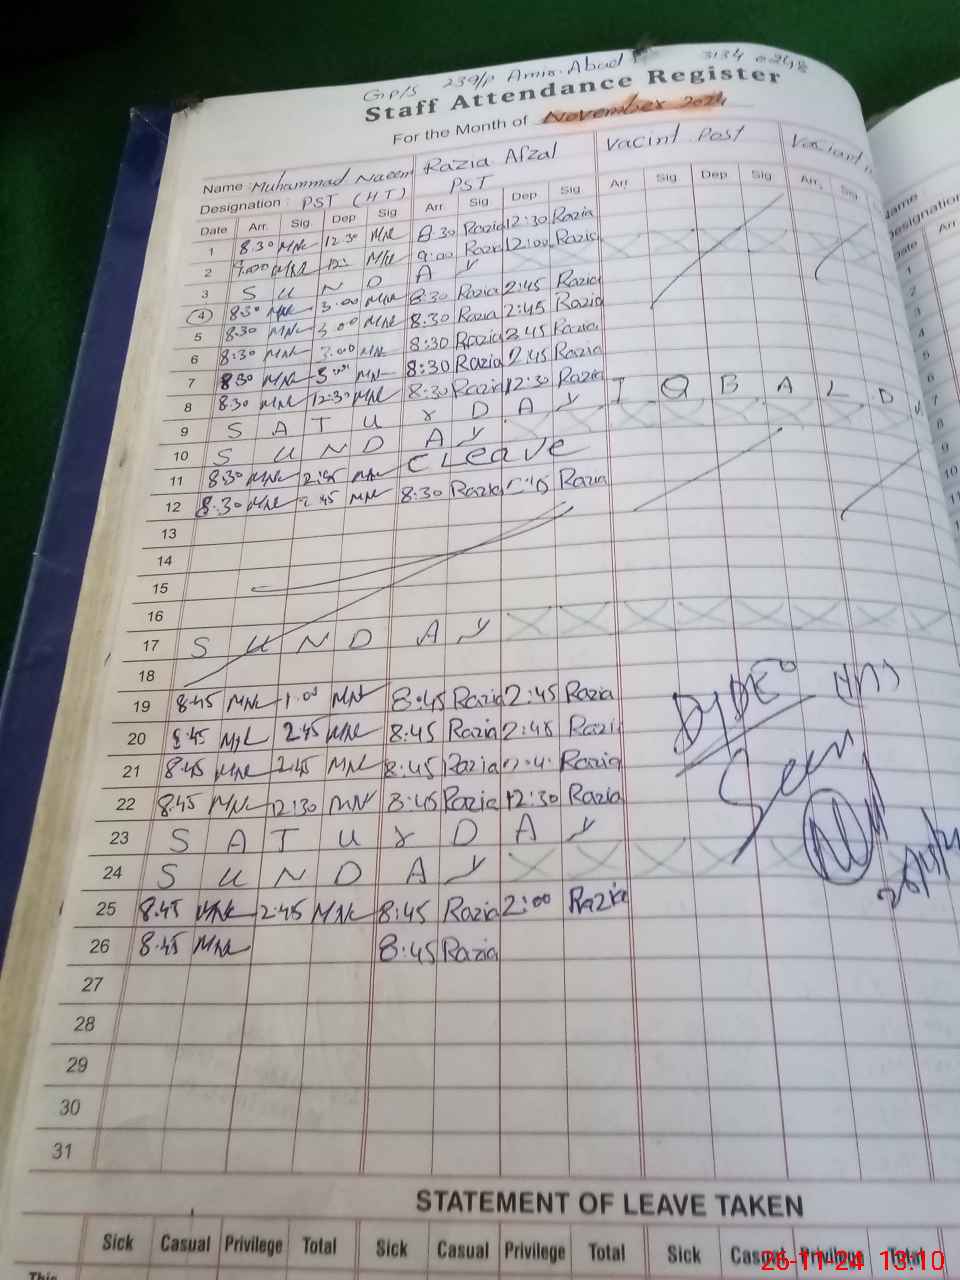 GP/S 239/P Amin Abad 3134 0248
Staff Attendance Register
For the Month of November 2024
Name Muhammad Naeem Razia Afzal Vacint Post Vaciant
Designation: PST (HT) PST
Date Arr. Sig Dep Sig Arr. Sig Dep Sig Arr. Sig Dep Sig Arr. Sig
1 8.30 MNL 12 30 MNL 8.30 Razia 12:30 Razia
2 9.00 MNL 12: MNL 9:00 Razia 12:00 Razia
3 S U N D A Y
4 830 MNL 3.00 MNL 8:30 Razia 2:45 Razia
5 8:30 MNL 3 00 MNL 8.30 Razia 2:45 Razia
6 8:30 MNL 3.00 MNL 8:30 Razia 2:45 Razia
7 830 MNL 3.00 MNL 8:30 Razia 2:45 Razia
8 8.30 MNL 12:30 MNL 8:30 Razia 12:30 Razia
9 S A T U r D A Y I Q B A L D
10 S U N D A Y
11 8:30 MNL 2:45 MNL C Leave
12 8:30 MNL 2 45 MNL 8:30 Razia Razia
13
14
15
16
17 S U N D A Y
18
19 8.45 MNL 1.00 MNL 8:45 Razia 2:45 Razia
20 8.45 MNL 245 MNL 8:45 Razia 2:45 Razia
21 8.45 MNL 2.45 MNL 8:45 Razia Razia
22 8.45 MNL 12:30 MNL 8:45 Razia 12:30 Razia
23 S A T U r D A Y
24 S U N D A Y
25 8.45 MNL 2:45 MNL 8:45 Razia 2:00 Razia
26 8.45 MNL 8:45 Razia
27
28
29
30
31
Seen
STATEMENT OF LEAVE TAKEN
Sick Casual Privilege Total Sick Casual Privilege Total Sick Casual Privilege Total
This
26-11-24 13:10